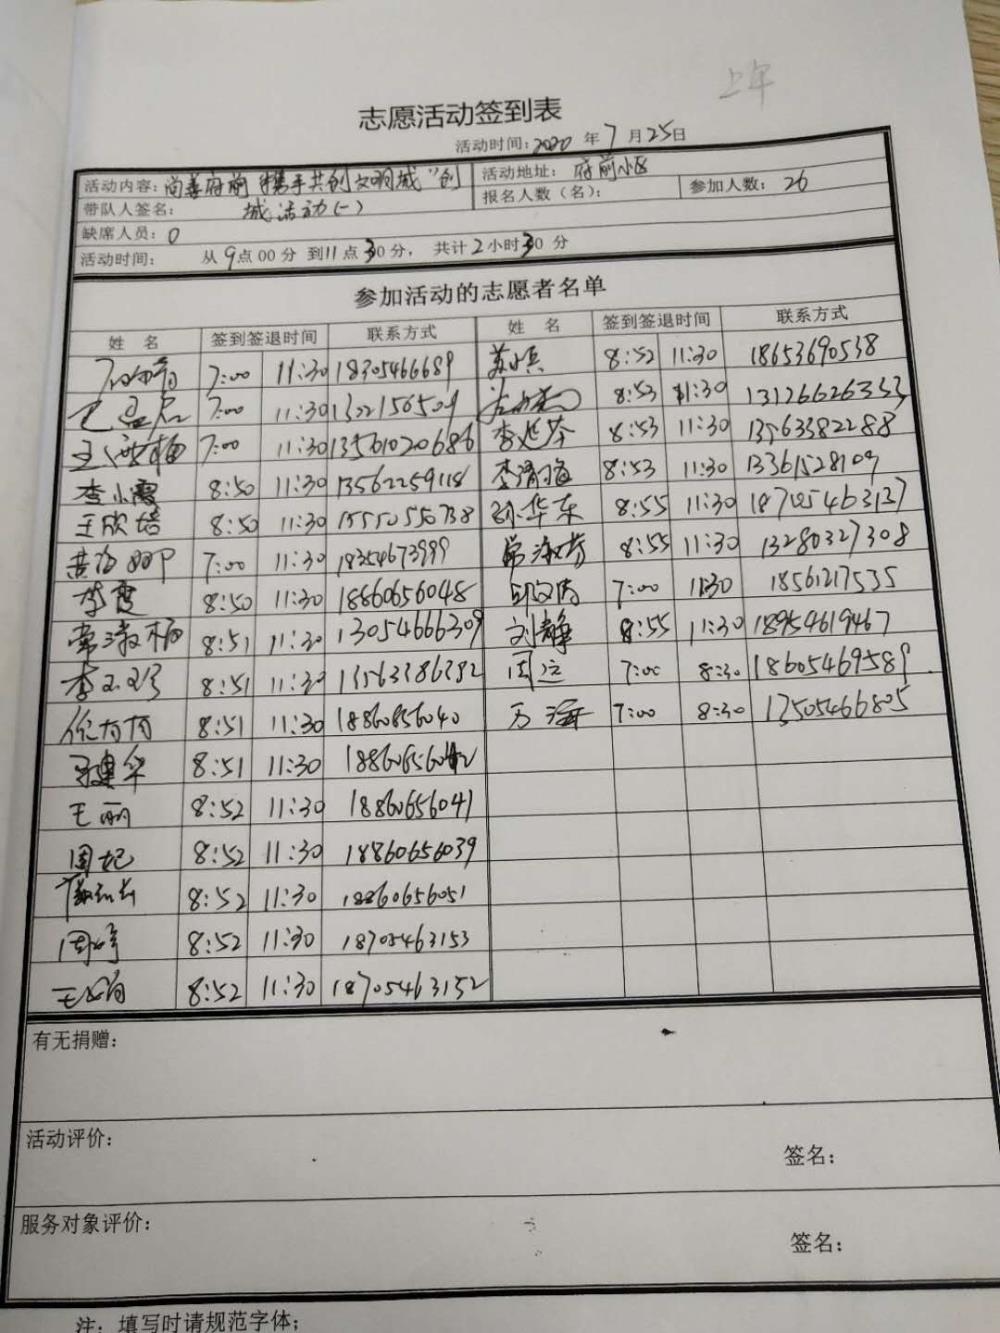 上午
志愿活动签到表
活动时间: 2020 年 7 月 25日
活动内容: 尚善府前"携手共创文明城"创 活动地址: 府前小区
带队人签名: 城活动(一) 报名人数(名): 参加人数: 26
缺席人员: 0
活动时间: 从 9点 00 分 到11 点 30分, 共计 2 小时 30 分
参加活动的志愿者名单
姓 名 签到签退时间 联系方式 姓 名 签到签退时间 联系方式
7:00 11:30 18305466689 8:52 11:30 18653690538
7:00 11:30 1302156509 8:53 11:30 13126626353
7:00 11:30 13561020686 李延芬 8:53 11:30 13563382288
李小霞 8:50 11:30 13562259118 李渭海 8:53 11:30 13361528109
王欣培 8:50 11:30 15550550738 孙华东 8:55 11:30 18705463137
7:00 11:30 18354673999 常淑芳 8:55 11:30 13280327308
李霞 8:50 11:30 18860656048 7:00 11:30 18561217535
常淑梅 8:51 11:30 13054666309 刘静 8:55 11:30 18954619467
8:51 11:30 周运 7:00 8:30 18605469589
8:51 11:30 18860656040 万海 7:00 8:30 13505466805
王建华 8:51 11:30 18860656042
王丽 8:52 11:30 18860656041
周妃 8:52 11:30 18860656039
8:52 11:30 18860656051
周婷 8:52 11:30 18705463153
8:52 11:30 18705463152
有无捐赠:
活动评价:
签名:
服务对象评价:
签名:
注: 填写时请规范字体;